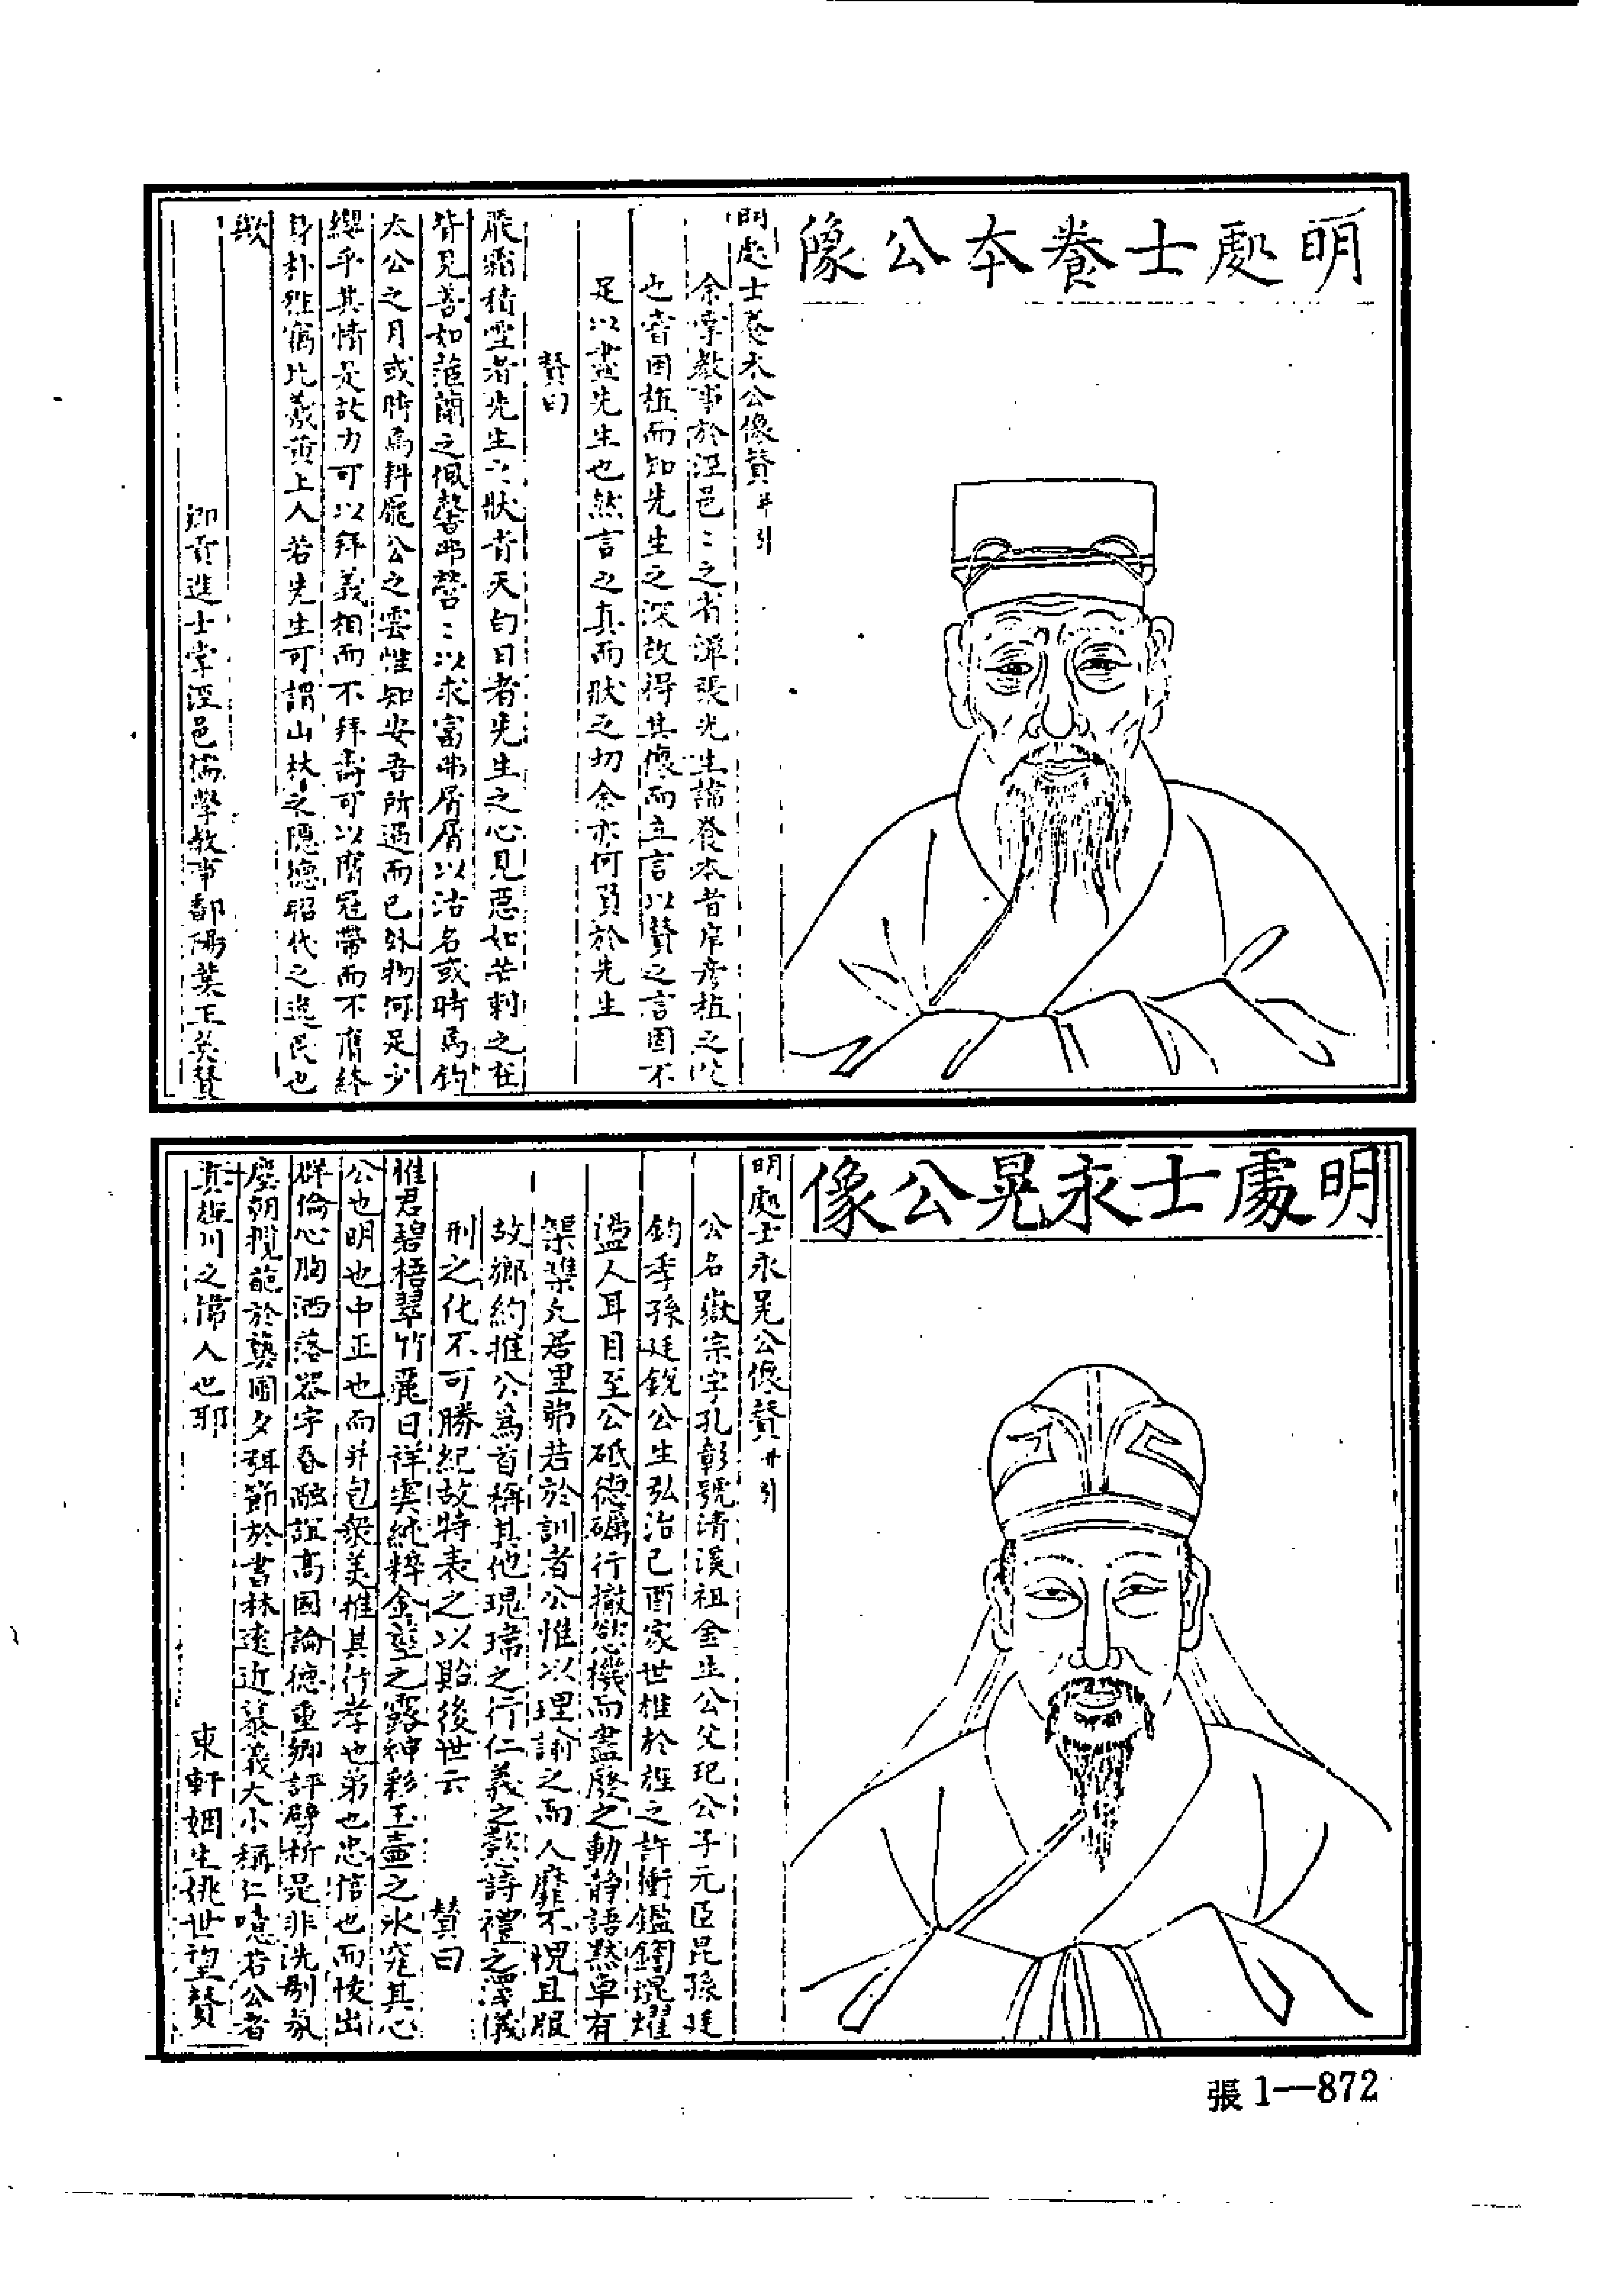 明處士養本公像
明處士養本公像贊并引
余掌教事於涇邑二之省潭張先生諱養本者序彥植之父
也嘗因植而知先生之深故得其像而立言以贊之言固不
足以盡先生也然言之真而狀之切余亦何負於先生
贊曰
嚴霜積雪者先生之狀青天白日者先生之心見惡如芒刺之在
背見善如蘭之馨弗營二以求富弗屑屑以沽名或時為釣
太公之月或時為耕龐公之雲惟知安吾所遇而已外物何足少
纓乎其情是故力可以拜義相而不拜壽可以膺冠帶而不膺終
身朴雅寓比羲黃上人若先生可謂山林之隱德昭代之逸民也
歟
鄉貢進士掌涇邑儒學教事鄱陽葉正英贊
明處士永晃公像
明處士永晃公像贊并引
公名嶽宗字孔彰號清溪祖金生公父玘公子元臣昆孫廷
鈞季孫廷銳公生弘治己酉家世椎於旌之許衝鑑錮焜燿
溢人耳目至公砥德礪行撤慾機而盡廢之動靜語默卓有
榘矱凡居里弗若於訓者公惟以理諭之而人靡不愧且服
故鄉約推公為首稱其他瑰瑋之行仁義之懿詩禮之澤儀
刑之化不可勝紀故特表之以貽後世云 贊曰
惟君碧梧翠竹麗日祥雲純粹金莖之露神彩玉壺之氷窺其心
公也明也中正也而并包衆美推其行孝也弟也忠信也而悛出
群倫心胸洒落器宇春融誼高國論德重鄉評劈析是非洗剔氛
塵朝攬葩於藝圃夕弭節於書林遠近慕義大小稱仁噫若公者
真旌川之偉人也耶
東軒姻生姚世望贊
張1—872